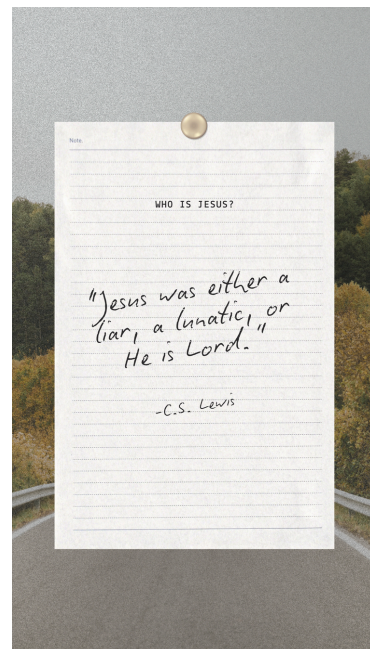 Note
WHO IS JESUS?
"Jesus was either a
liar, a lunatic, or
He is Lord."
-C.S. Lewis